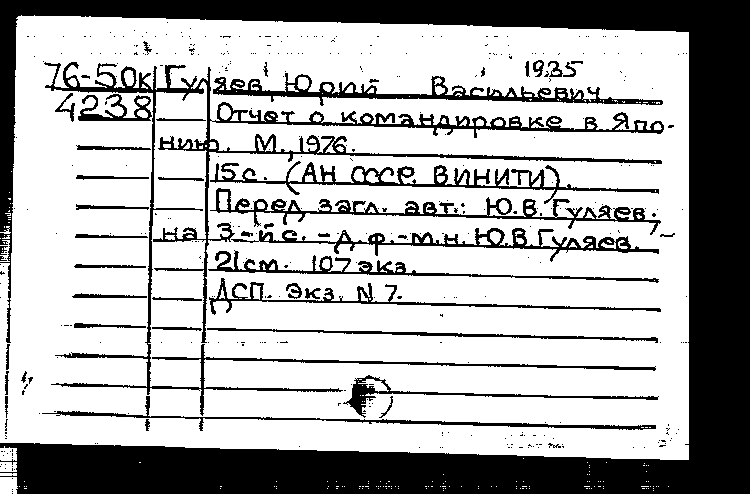 1935
76-50к Гуляев, Юрий Васильевич.
4238 Отчет о командировке в Япо-
нию. М., 1976.
15 с. (АН СССР. ВИНИТИ).
Перед загл. авт.: Ю.В. Гуляев.
на 3-й с. - д.ф.-м.н. Ю.В. Гуляев.
21 см. 107 экз.
ДСП. Экз. N 7.